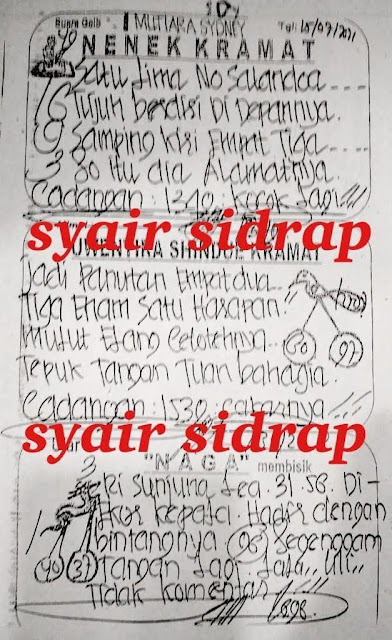 SDY
Suara Goib MUTIARA SYDNEY Tgl: 15/09/2021
NENEK KRAMAT
Satu Lima No Salandoa...
Tujuh berdisi Di Depannya.
Samping kisi Empat Tiga
80 itu dia Alamatnya.
Cadangan: 1340: kocok lagi!!!
syair sidrap
UWENTIKA SHINDUE KRAMAT
Jadi Panutan Empat dua...
Tiga Enam Satu Harapan!!
Mulut Elang Celotehnya..
60 97
Tepuk Tangan Tuan bahagia.
Cadangan: 1530:
syair sidrap
"NAGA" membisik
31.58. Di-
kepala. Hadir dengan
bintangnya 06 segenggam
40 37 Tangan lagi
Tidak komentar!